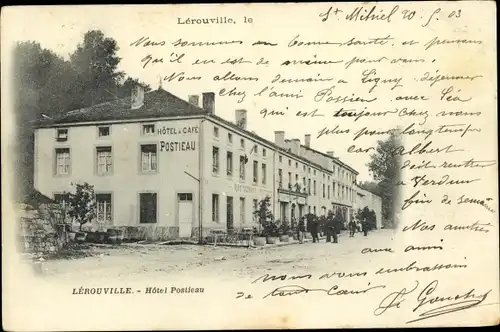 Lérouville, le
St Mihiel 20. 5. 03
Nous sommes en bonne santé et pensons
qu'il en est de même pour vous.
Nous allons demain à Ligny déjeuner
chez l'ami Possien avec Léa
qui est toujours chez
nous pour plus longtemps
car Albert
doit rentrer
à Verdun
fin de semne
Nos amitiés
aux amis
nous vous embrassons
de tout cœur
HÔTEL & CAFÉ
POSTIEAU
RESTAURANT
LÉROUVILLE. - Hôtel Postieau